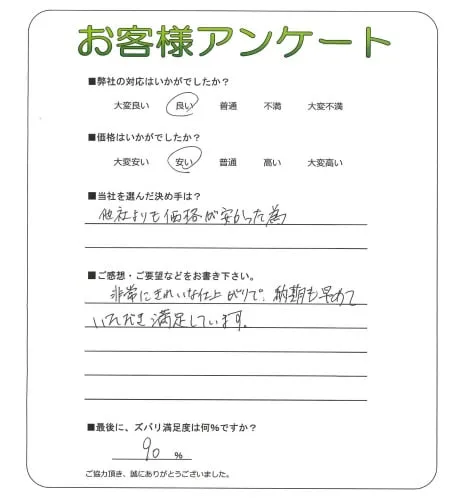 お客様アンケート
■弊社の対応はいかがでしたか？
大変良い 良い 普通 不満 大変不満
■価格はいかがでしたか？
大変安い 安い 普通 高い 大変高い
■当社を選んだ決め手は？
他社よりも価格が安かった為
■ご感想・ご要望などをお書き下さい。
非常にきれいな仕上がりで、納期も早めて
いただき満足しています。
■最後に、ズバリ満足度は何%ですか？
90 %
ご協力頂き、誠にありがとうございました。